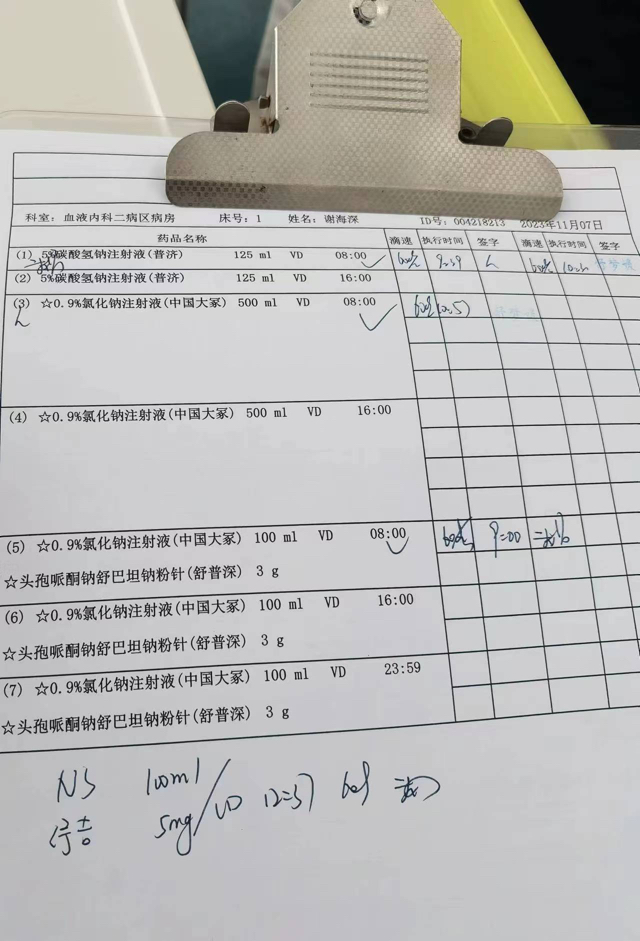 科室：血液内科二病区病房 床号：1 姓名：谢海深 ID号：004218213 2023年11月07日
药品名称 滴速 执行时间 签字 滴速 执行时间 签字
(1) 5%碳酸氢钠注射液(普济) 125 ml VD 08:00
(2) 5%碳酸氢钠注射液(普济) 125 ml VD 16:00
(3) ☆0.9%氯化钠注射液(中国大冢) 500 ml VD 08:00
(4) ☆0.9%氯化钠注射液(中国大冢) 500 ml VD 16:00
(5) ☆0.9%氯化钠注射液(中国大冢) 100 ml VD 08:00
☆头孢哌酮钠舒巴坦钠粉针(舒普深) 3 g
(6) ☆0.9%氯化钠注射液(中国大冢) 100 ml VD 16:00
☆头孢哌酮钠舒巴坦钠粉针(舒普深) 3 g
(7) ☆0.9%氯化钠注射液(中国大冢) 100 ml VD 23:59
☆头孢哌酮钠舒巴坦钠粉针(舒普深) 3 g
NS 100ml
5mg / VD